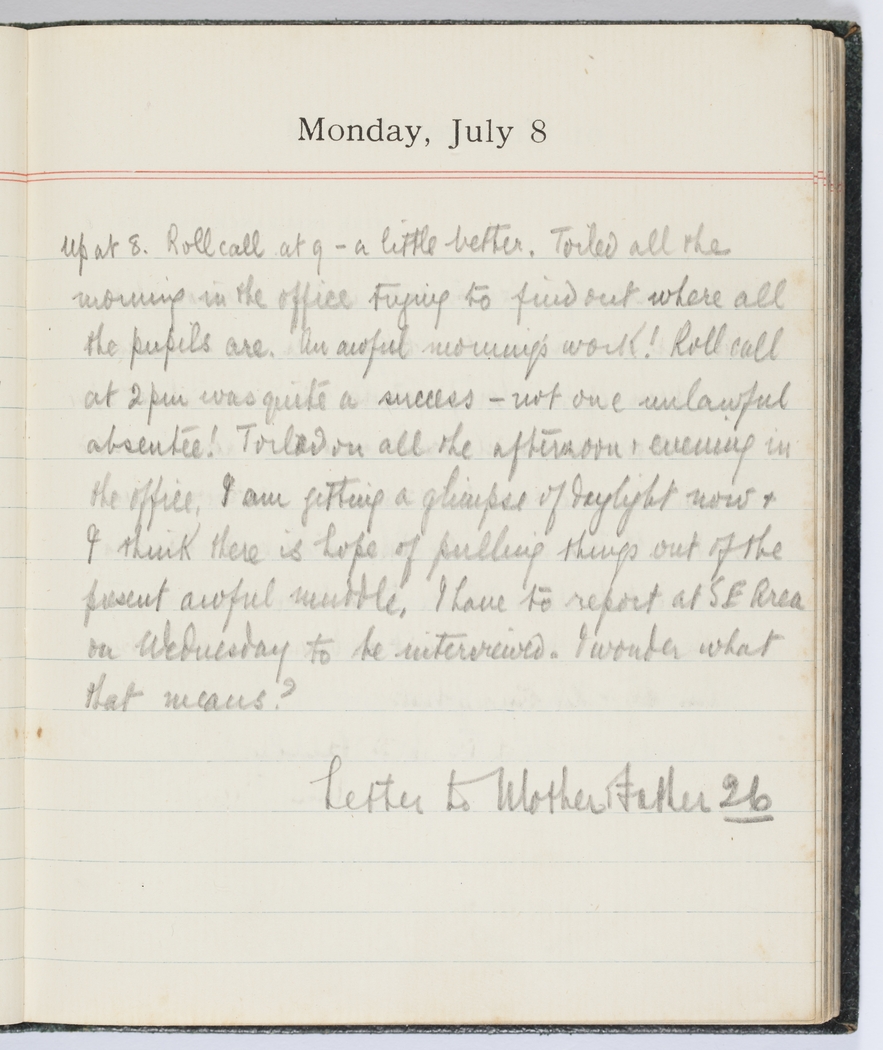 Monday, July 8
Up at 8. Roll call at 9 – a little better. Toiled all the
morning in the office trying to find out where all
the pupils are. An awful morning's work! Roll call
at 2 pm was quite a success – not one unlawful
absentee! Toiled on all the afternoon + evening in
the office. I am getting a glimpse of daylight now +
I think there is hope of pulling things out of the
present awful muddle. I have to report at S.E Area
on Wednesday to be interviewed. I wonder what
that means?
Letter to Mother + Father 26